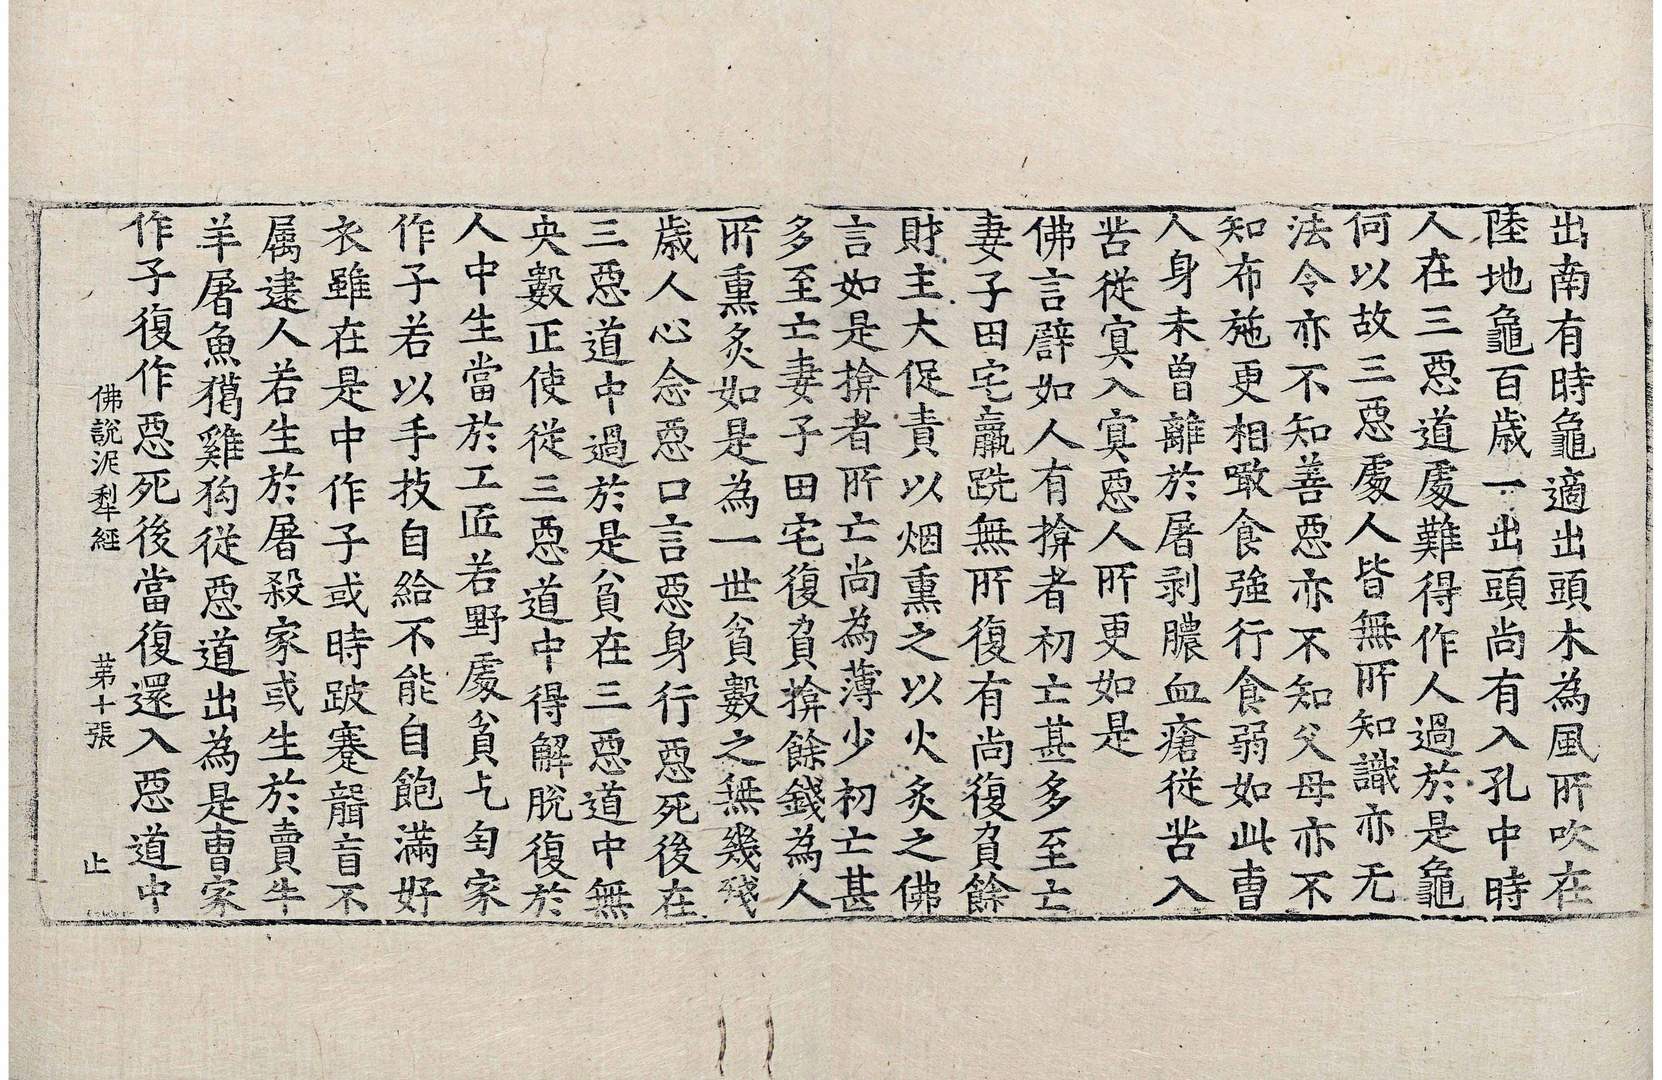 出南有時龜適出頭木為風所吹在
陸地龜百歲一出頭尚有入孔中時
人在三惡道處難得作人過於是龜
何以故三惡處人皆無所知識亦无
法令亦不知善惡亦不知父母亦不
知布施更相噉食強行食弱如此曹
人身未曾離於屠剥膿血瘡從苦入
苦從㝠入㝠惡人所更如是
佛言譬如人有揜者初亡甚多至亡
妻子田宅羸跣無所復有尚復負餘
財主大促責以烟熏之以火炙之佛
言如是揜者所亡尚為薄少初亡甚
多至亡妻子田宅復負揜餘錢為人
所熏炙如是為一世貧數之無幾殘
歳人心念惡口言惡身行惡死後在
三惡道中過於是貧在三惡道中無
央數正使從三惡道中得解脫復於
人中生當於工匠若野處貧乞匃家
作子若以手技自給不能自飽滿好
衣雖在是中作子或時跛蹇聾盲不
属逮人若生於屠殺家或生於賣牛
羊屠魚獦雞狗從惡道出為是曹家
作子復作惡死後當復還入惡道中
佛說泥犁經 苐十張 止